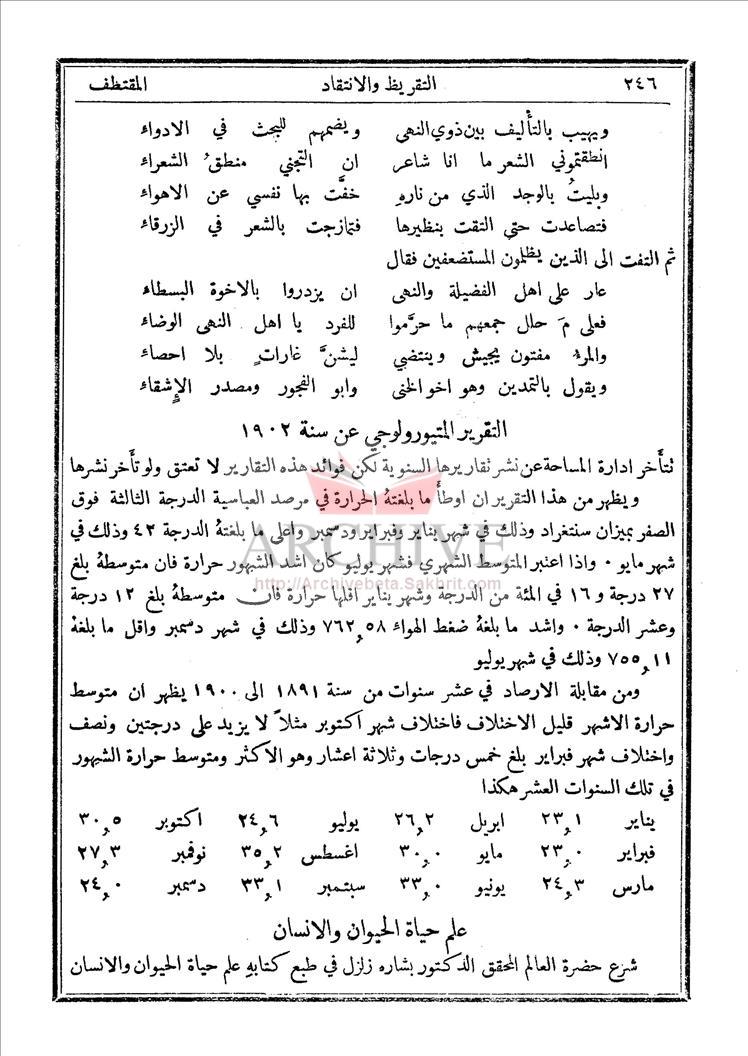 ٢٤٦ التقريظ والانتقاد المقتطف
ويهيب بالتأليف بين ذوي النهى ويضمهم للبحث في الادواء
انطقتموني الشعر ما انا شاعر ان التجني منطق الشعراء
وبليتُ بالوجد الذي من نارهِ خفَّت بها نفسي عن الاهواء
فتصاعدت حتى التقت بنظيرها فتمازجت بالشعر في الزرقاء
ثم التفت الى الذين يظلمون المستضعفين فقال
عار على اهل الفضيلة والنهى ان يزدروا بالاخوة البسطاء
فعلى مَ حلل جمعهم ما حرَّموا للفرد يا اهل النهى الوضاء
والمرء مفتون يجيش وينتضي ليشنَّ غاراتٍ بلا احصاء
ويقول بالتمدين وهو اخو الخنى وابو الفجور ومصدر الإشقاء
التقرير المتيورولوجي عن سنة ١٩٠٢
تتأخر ادارة المساحة عن نشر تقاريرها السنوية لكن فوائد هذه التقارير لا تعتق ولو تأخر نشرها
ويظهر من هذا التقرير ان اوطأ ما بلغتهُ الحرارة في مرصد العباسية الدرجة الثالثة فوق
الصفر بميزان سنتغراد وذلك في شهر يناير وفبراير ودسمبر واعلى ما بلغتهُ الدرجة ٤٢ وذلك في
شهر مايو ٠ واذا اعتبر المتوسط الشهري فشهر يوليو كان اشد الشهور حرارة فان متوسطهُ بلغ
٢٧ درجة و ١٦ في المئة من الدرجة وشهر يناير اقلها حرارة فان متوسطهُ بلغ ١٢ درجة
وعشر الدرجة ٠ واشد ما بلغهُ ضغط الهواء ٧٦٢٫٥٨ وذلك في شهر دسمبر واقل ما بلغهُ
٧٥٥٫١١ وذلك في شهر يوليو
ومن مقابلة الارصاد في عشر سنوات من سنة ١٨٩١ الى ١٩٠٠ يظهر ان متوسط
حرارة الاشهر قليل الاختلاف فاختلاف شهر اكتوبر مثلاً لا يزيد على درجتين ونصف
واختلاف شهر فبراير بلغ خمس درجات وثلاثة اعشار وهو الاكثر ومتوسط حرارة الشهور
في تلك السنوات العشر هكذا
يناير ٢٣٫١ ابريل ٢٦٫٢ يوليو ٢٤٫٦ اكتوبر ٣٠٫٥
فبراير ٢٣٫٠ مايو ٣٠٫٠ اغسطس ٣٥٫٢ نوفمبر ٢٧٫٣
مارس ٢٤٫٣ يونيو ٣٣٫٠ سبتمبر ٣٣٫١ دسمبر ٢٤٫٠
علم حياة الحيوان والانسان
شرع حضرة العالم المحقق الدكتور بشاره زلزل في طبع كتابهِ علم حياة الحيوان والانسان
ARCHIVE
http://Archivebeta.Sakhrit.com